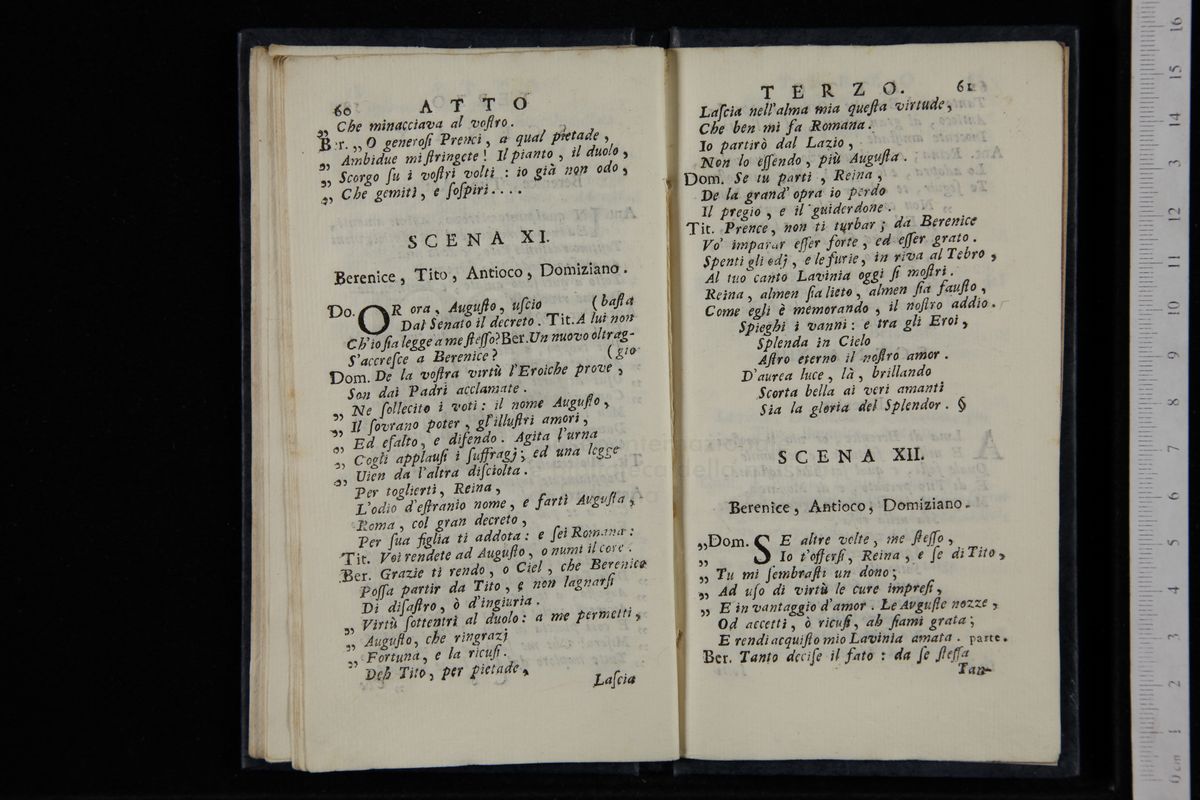 60 ATTO
„ Che minacciava al voſtro.
Ber. „ O generoſi Prenci, a qual pietade,
„ Ambidue mi ſtringete! Il pianto, il duolo,
„ Scorgo ſu i voſtri volti: io già non odo,
„ Che gemiti, e ſoſpiri....
SCENA XI.
Berenice, Tito, Antioco, Domiziano.
Do. OR ora, Auguſto, uſcio (baſta
Dal Senato il decreto. Tit. A lui non
Ch'io ſia legge a me ſteſſo? Ber. Un nuovo oltrag-
S'accreſce a Berenice? (gio
Dom. De la voſtra virtù l'Eroiche prove,
Son dai Padri acclamate.
„ Ne ſollecito i voti: il nome Auguſto,
„ Il ſovrano poter, gl'illuſtri amori,
„ Ed eſalto, e difendo. Agita l'urna
„ Cogli applauſi i ſuffragj; ed una legge
„ Uien da l'altra diſciolta.
Per toglierti, Reina,
L'odio d'eſtranio nome, e farti Avguſta,
Roma, col gran decreto,
Per ſua figlia ti addota: e ſei Romana:
Tit. Voi rendete ad Auguſto, o numi il core.
Ber. Grazie ti rendo, o Ciel, che Berenice
Poſſa partir da Tito, e non lagnarſi
Di diſaſtro, ò d'ingiuria.
„ Virtù ſottentri al duolo: a me permetti,
„ Auguſto, che ringrazj
„ Fortuna, e la ricuſi.
Deh Tito, per pietade,
Laſcia
TERZO. 61
Laſcia nell'alma mia queſta virtude,
Che ben mi fa Romana.
Io partirò dal Lazio,
Non lo eſſendo, più Auguſta.
Dom. Se tu parti, Reina,
De la grand' opra io perdo
Il pregio, e il guiderdone.
Tit. Prence, non ti turbar; da Berenice
Vo' imparar eſſer forte, ed eſſer grato.
Spenti gli odj, e le furie, in riva al Tebro,
Al tuo canto Lavinia oggi ſi moſtri.
Reina, almen ſia lieto, almen ſia fauſto,
Come egli è memorando, il noſtro addio.
Spieghi i vanni: e tra gli Eroi,
Splenda in Cielo
Aſtro eterno il noſtro amor.
D'aurea luce, là, brillando
Scorta bella ai veri amanti
Sia la gloria del Splendor. §
SCENA XII.
Berenice, Antioco, Domiziano.
„Dom. SE altre volte, me ſteſſo,
„ Io t'offerſi, Reina, e ſe di Tito,
„ Tu mi ſembraſti un dono;
„ Ad uſo di virtù le cure impreſi,
„ E in vantaggio d'amor. Le Avguſte nozze,
Od accetti, ò ricuſi, ah ſiami grata;
E rendi acquiſto mio Lavinia amata. parte.
Ber. Tanto deciſe il fato: da ſe ſteſſa
Tan-
16
15
14
13
12
11
10
9
8
7
6
5
4
3
2
1
0 cm